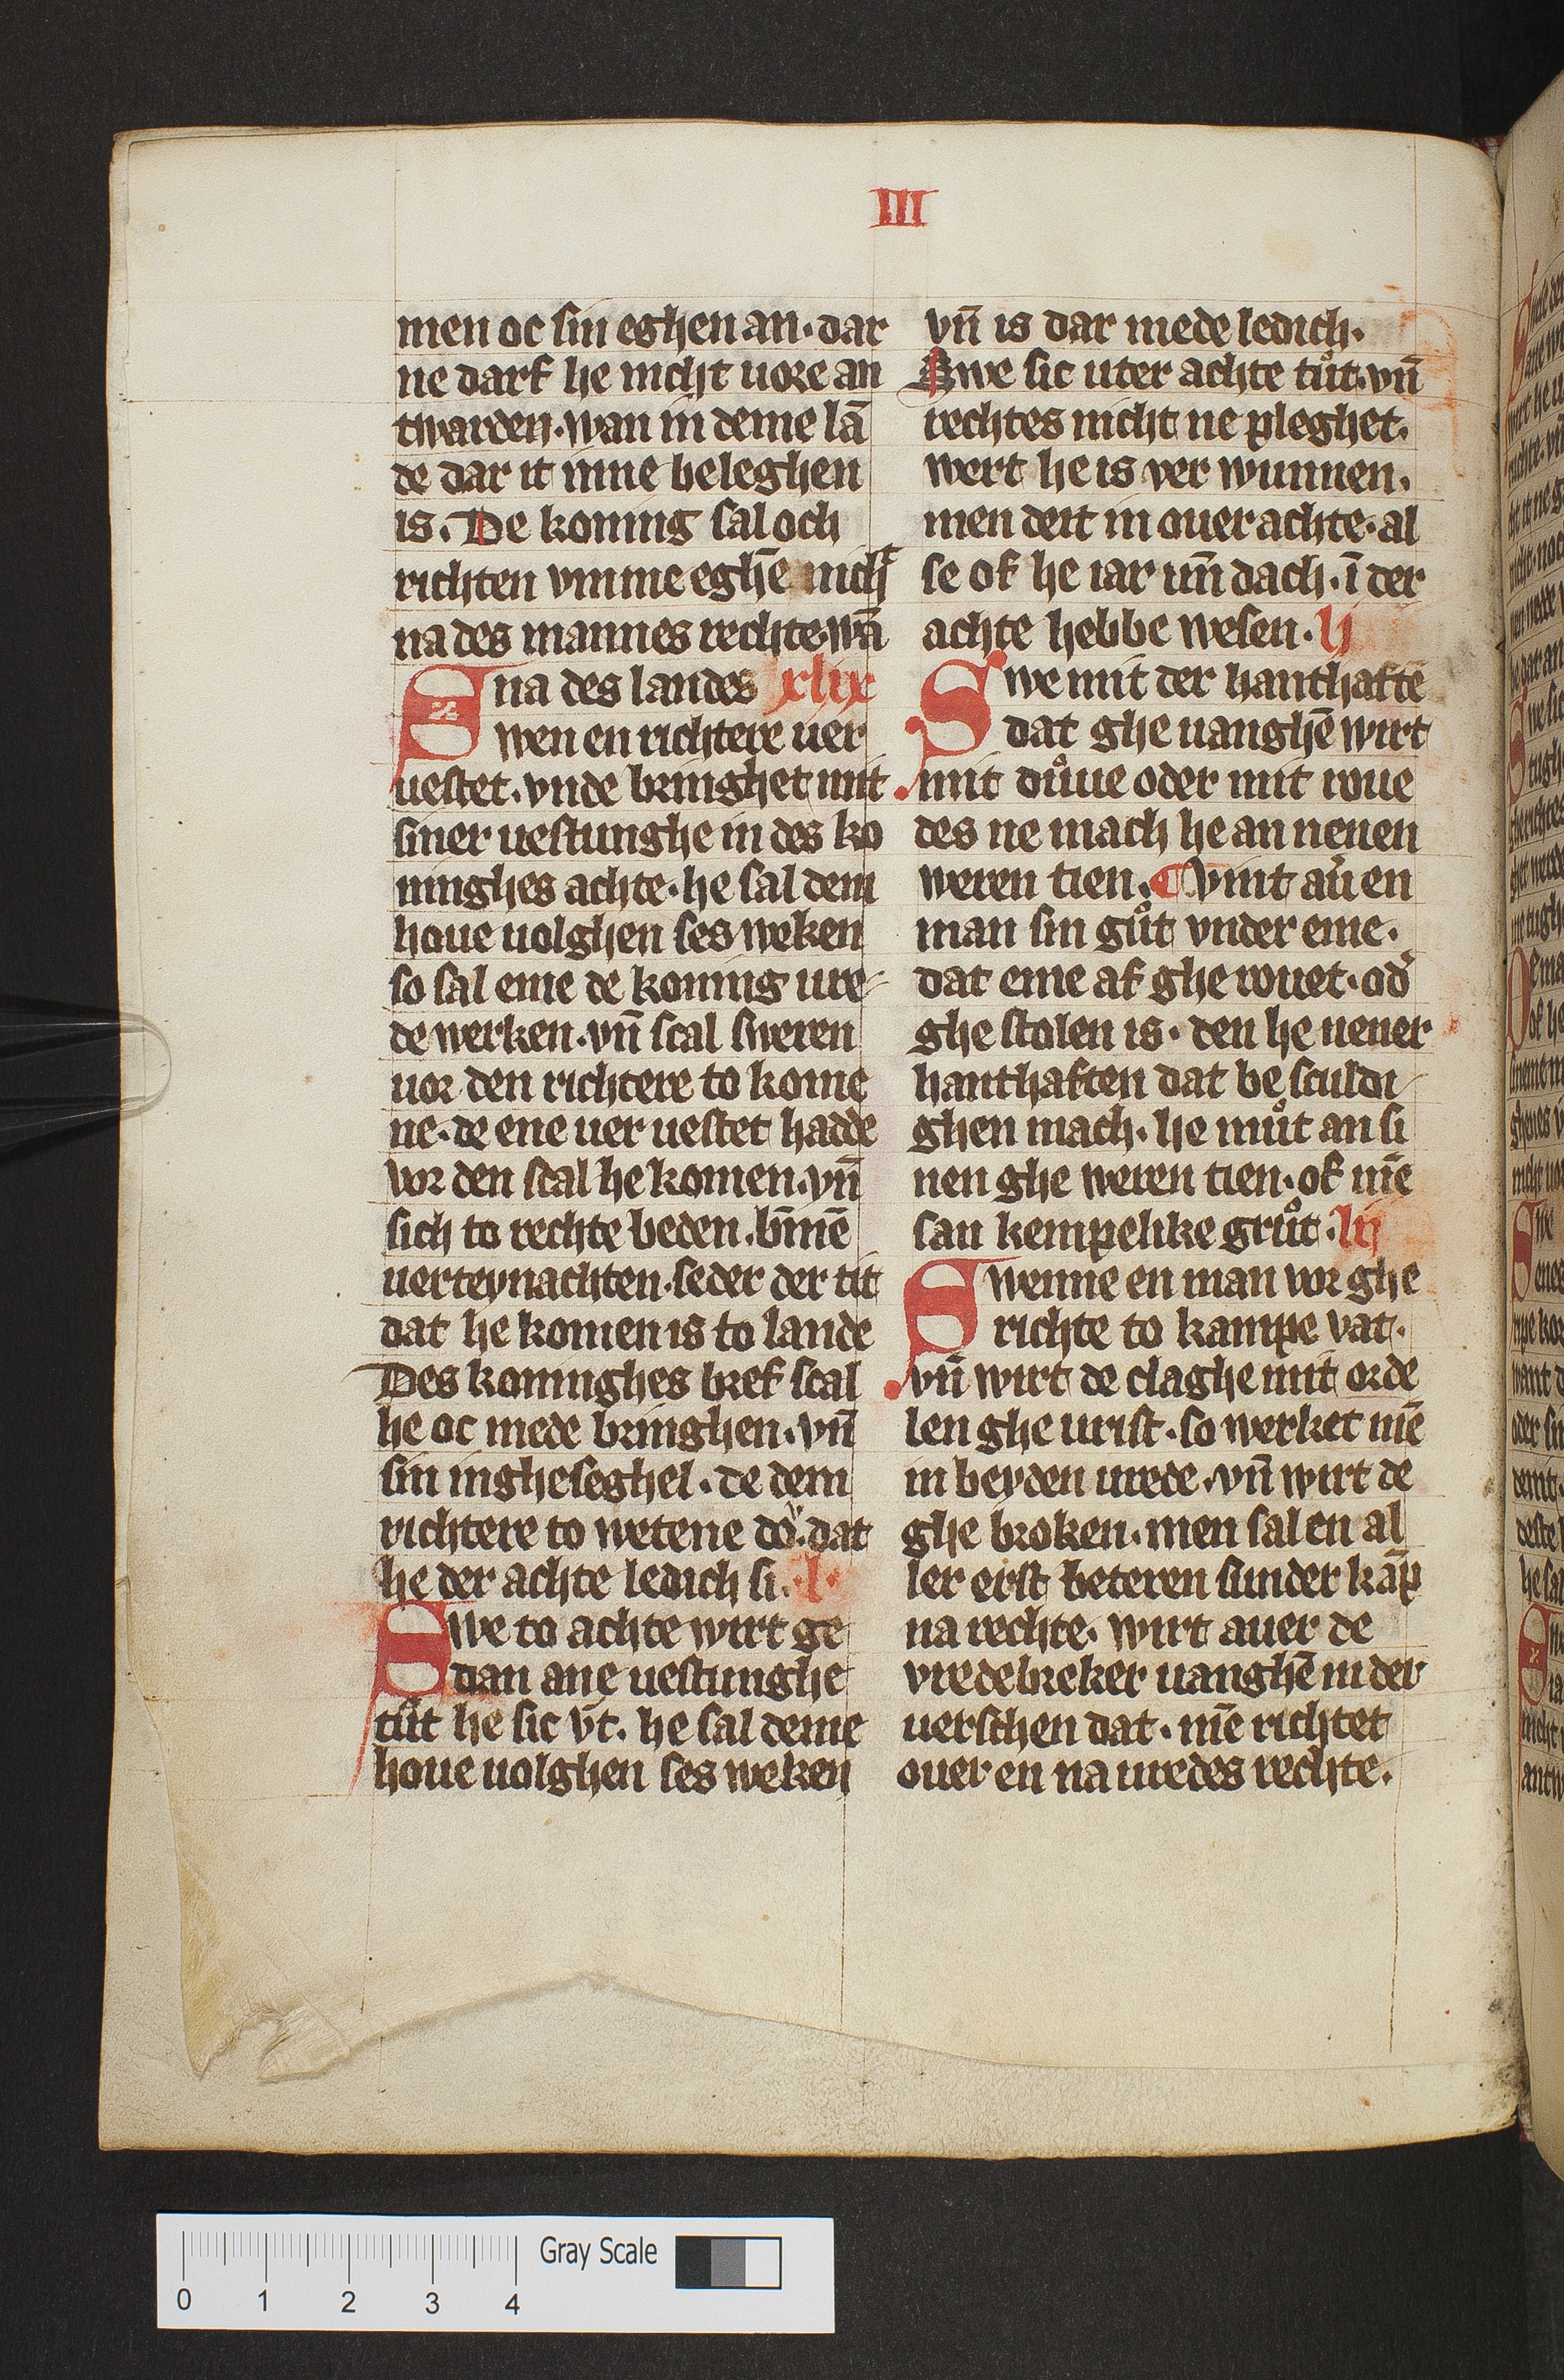 III
men oc sin eghen an· dar
ne darf he nicht uore an
twarden· wan in deme lā
de dar it inne beleghen
is. De koning sal och
richten vmme eghē nichͭ
na des mannes rechte· wā
na des landes xlix
Swen en richtere uer
uestet. vnde bringhet mit
siner uestunghe in des ko
ninghes achte· he sal dem
houe uolghen ses weken
so sal eme de koning ure
de werken. vn̄ scal sweren
uor den richtere to kome
ne· de ene uer uestet hadde
vor den scal he komen. vn̄
sich to rechte beden. bīnē
uerteynachten· seder der tit
dat he komen is to lande
Des koninghes bref scal
he oc mede bringhen· vn̄
sin ingheseghel· de dem
richtere to wetene doͮ· dat
he der achte ledich si. ·l·
Swe to achte wirt ge
dan ane uestunghe
tuͦt he sic vt. he sal deme
houe uolghen ses weken
vn̄ is dar mede ledich·
Swe sic uter achte tuͦt· vn̄
rechtes nicht ne pleghet.
wert he is ver wunnen.
men deit in ouer achte· al
se of he iar un̄ dach· ī der
achte hebbe wesen· lj
Swe mit der hanthaftē
dat ghe uanghē wirt
mit duͦue oder mit roue
des ne mach he an nenen
weren tien. ¶ Vint au̾ en
man sin guͦt vnder eme·
dat eme af ghe rouet· od̾
ghe stolen is· den he nener
hanthaften dat be sculdi
ghen mach. he muͦt an si
nen ghe weren tien· of mē
san kempelike gruͦt· lij
Swenne en man vor ghe
richte to kampe vat·
vn̄ wirt de claghe mit orde
len ghe urist· so werket mē
in beyden urede· vn̄ wirt de
ghe broken. men sal en al
ler erst beteren sunder kāp
na rechte· wirt auer de
vredebreker uanghē in der
uerschen dat· mē richtet
ouer en na uredes rechte.
Gray Scale
0 1 2 3 4